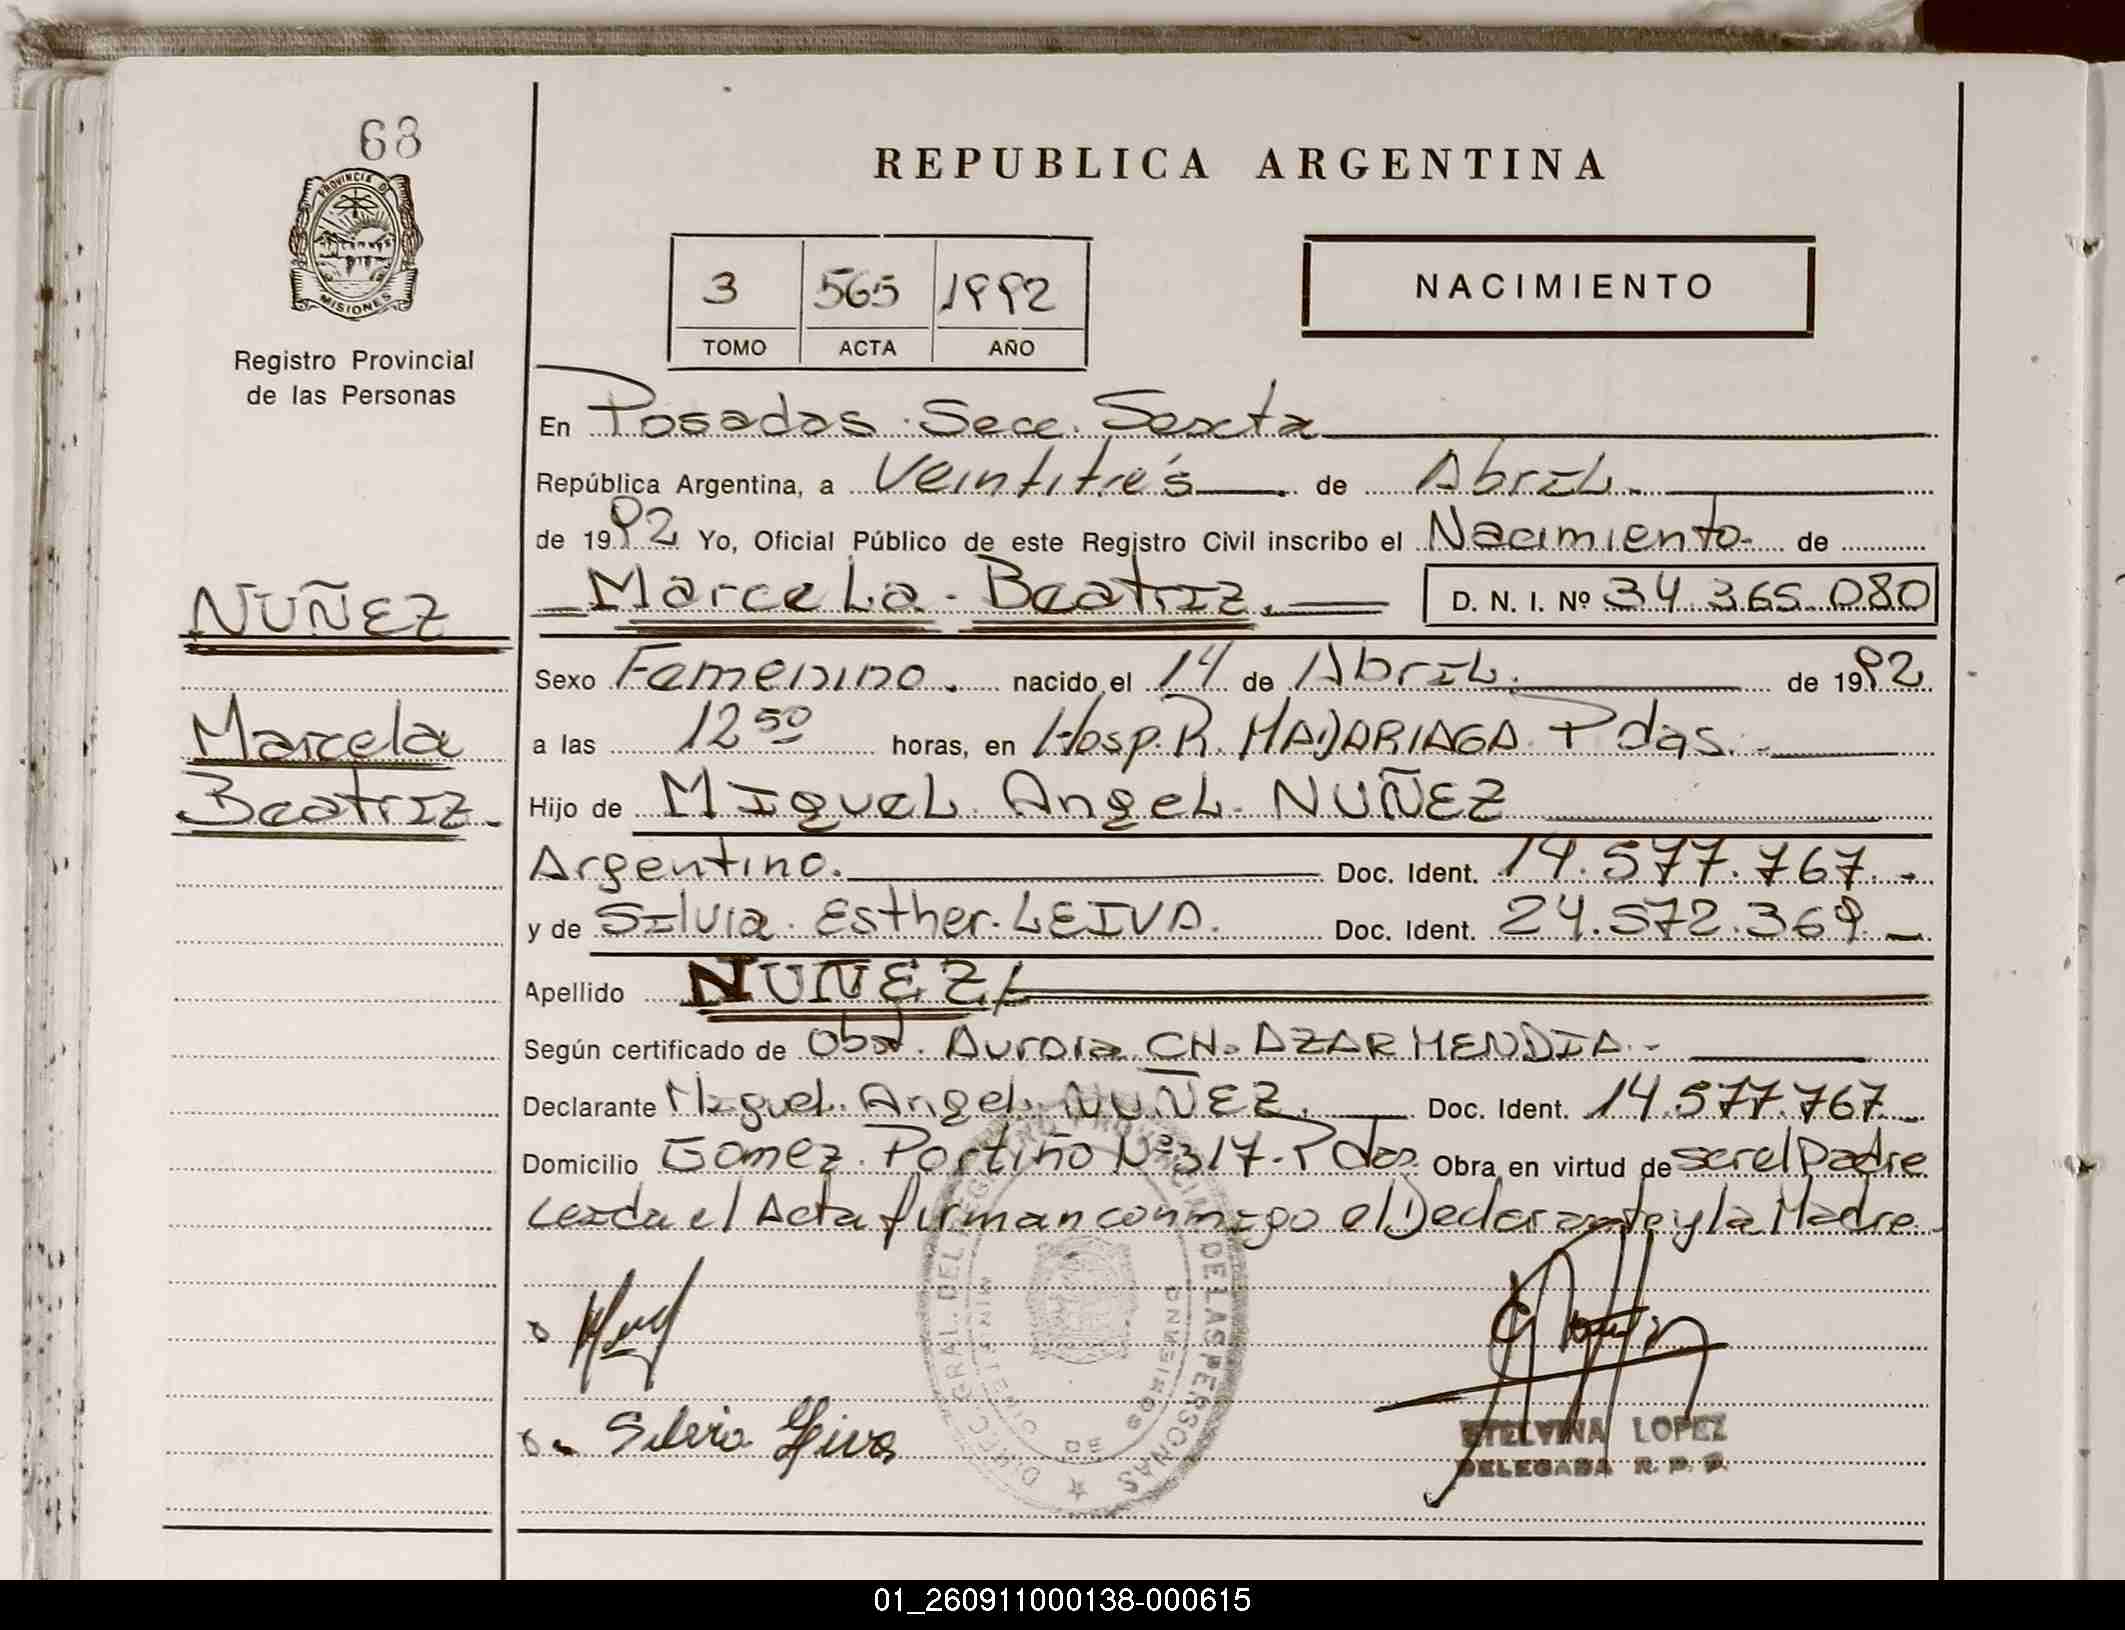 68
PROVINCIA DE
MISIONES
Registro Provincial
de las Personas
REPUBLICA ARGENTINA
3 565 1992
TOMO ACTA AÑO
NACIMIENTO
En Posadas. Secc. Sexta
República Argentina, a Veintitrés de Abril.
de 1992 Yo, Oficial Público de este Registro Civil inscribo el Nacimiento de
NUÑEZ
Marcela
Beatriz.
Marcela. Beatriz. D. N. I. Nº 34.365.080
Sexo Femenino. nacido el 14 de Abril. de 1992
a las 12 50 horas, en Hosp. R. MADARIAGA. Pdas.
Hijo de Miguel. Angel. NUÑEZ
Argentino. Doc. Ident. 14.577.767.-
y de Silvia. Esther. LEIVA. Doc. Ident. 24.572.369.-
Apellido NUÑEZ/
Según certificado de Obst. Aurora CH. AZARMENDIA.-
Declarante Miguel. Angel. NUÑEZ. Doc. Ident. 14.577.767
Domicilio Gomez. Portiño Nº 317. Pdas. Obra en virtud de ser el Padre
Leida el Acta firman conmigo el Declarante y la Madre.
Silvia Leiva
DIREC. GRAL. DEL REGISTRO PROVINCIAL DE LAS PERSONAS
MINISTERIO DE GOBIERNO
ETELVINA LOPEZ
DELEGADA R. P. P.
01_260911000138-000615